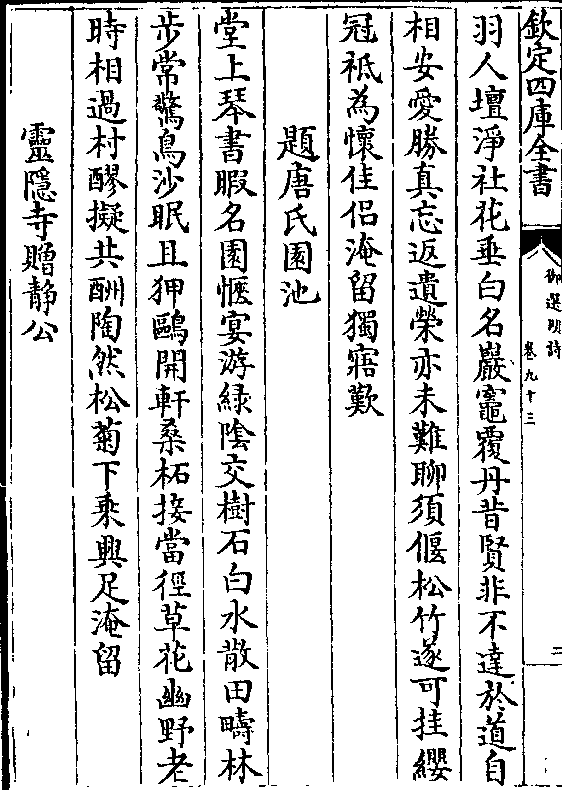 欽定四庫全書
御選明詩
卷九十三
二
羽人壇淨社花垂白名巖竈覆丹昔賢非不達於道自
相安愛勝真忘返遺榮亦未難聊須偃松竹遂可挂纓
冠祗為懷佳侶淹留獨寤歎
題唐氏園池
堂上琴書暇名園愜宴游綠陰交樹石白水散田疇林
步常驚鳥沙眠且狎鷗開軒桑柘接當徑草花幽野老
時相過村醪擬共酬陶然松菊下乗興足淹留
靈隱寺贈静公